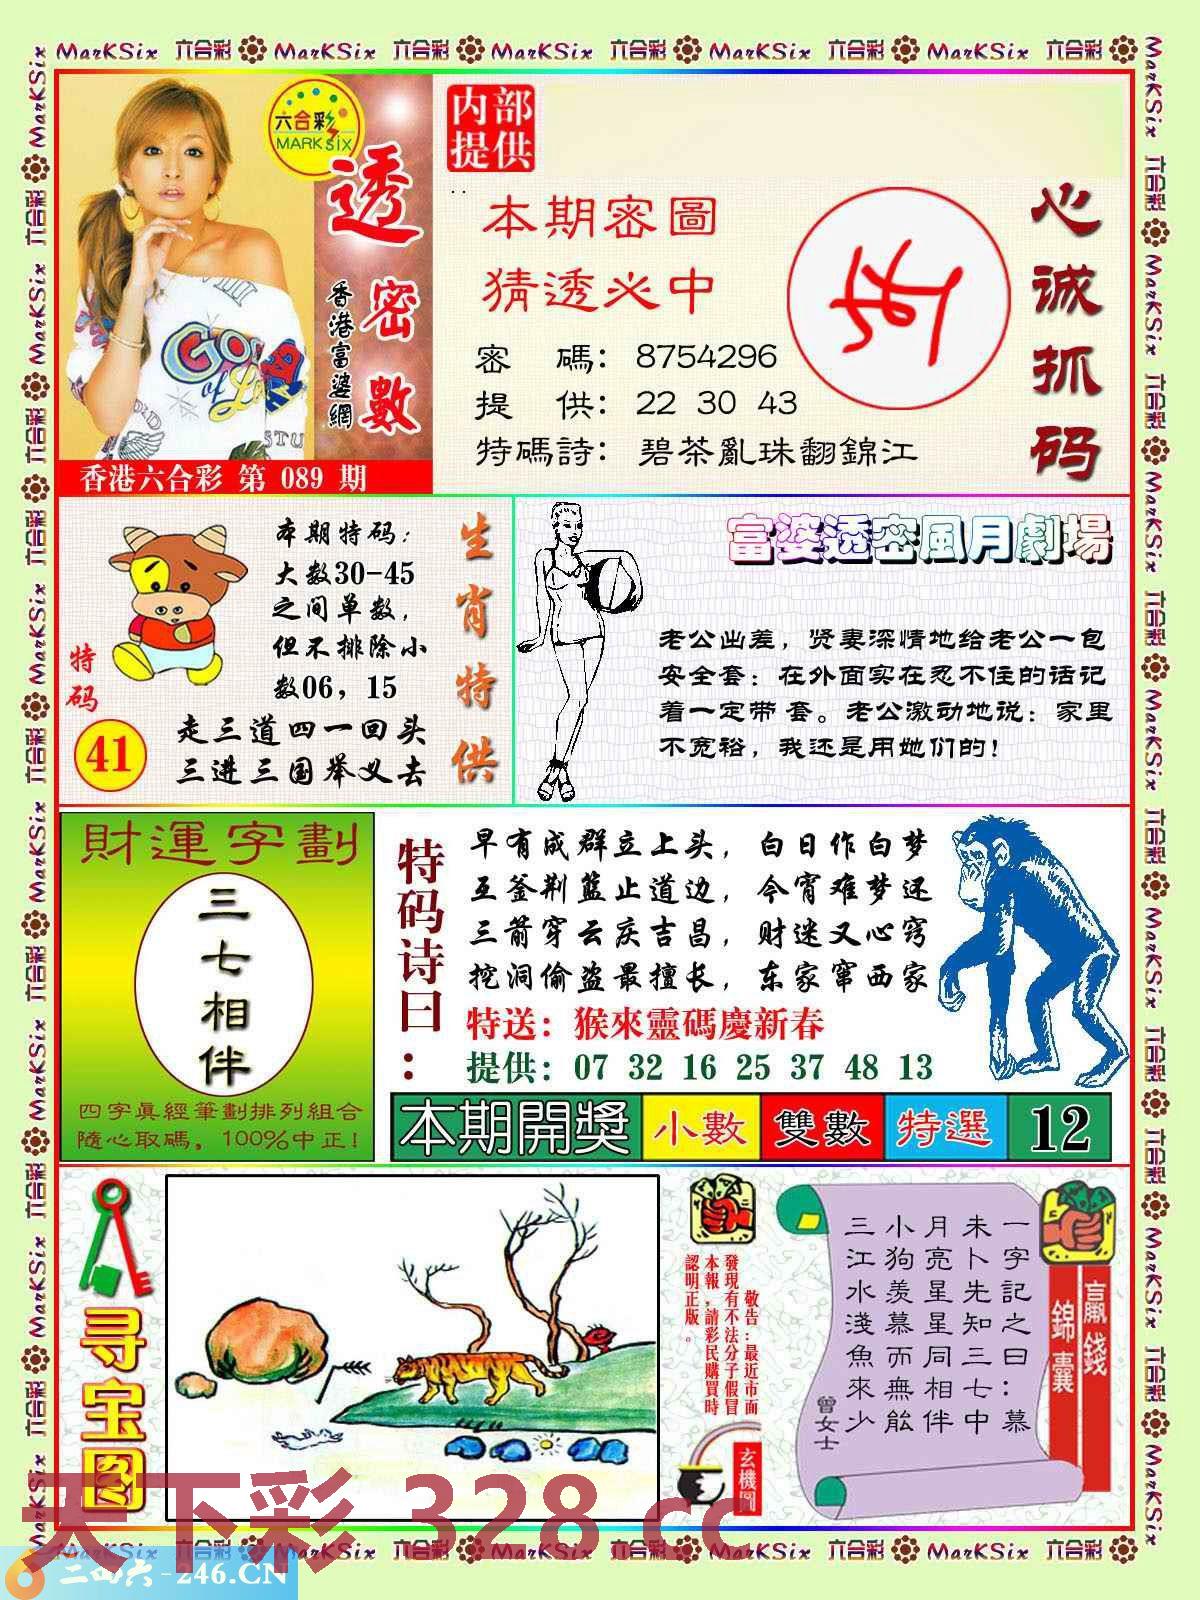 MarKSix 六合彩 MarKSix 六合彩 MarKSix 六合彩 MarKSix 六合彩 MarKSix 六合彩
六合彩
MARK SIX
透密數
香港富婆網
香港六合彩 第 089 期
内部
提供
本期密圖
猜透必中
密 碼: 8754296
提 供: 22 30 43
特碼詩: 碧茶亂珠翻錦江
心诚抓码
本期特码:
大数30-45
之间单数,
但不排除小
数06, 15
特码
41
走三道四一回头
三进三国举义去
生肖特供
富婆透密風月劇場
老公出差, 贤妻深情地给老公一包
安全套: 在外面实在忍不住的话记
着一定带 套。老公激动地说: 家里
不宽裕, 我还是用她们的!
財運字劃
三七相伴
四字眞經筆劃排列組合
隨心取碼, 100%中正!
特码诗曰:
早有成群立上头, 白日作白梦
互釜荆篮止道边, 今宵难梦还
三箭穿云庆吉昌, 财迷又心窍
挖洞偷盗最擅长, 东家窜西家
特送: 猴來靈碼慶新春
提供: 07 32 16 25 37 48 13
本期開獎 小數 雙數 特選 12
寻宝图
敬告:最近市面
發現有不法分子假冒
本報,請彩民購買時
認明正版。
玄機圖
一字記之曰:慕
未卜先知三七中
月亮星星同相伴
小狗羨慕而無能
三江水淺魚來少
曾女士
贏錢
錦囊
天下彩 328.cc
二四六-246.CN
MarKSix 六合彩 MarKSix 六合彩 MarKSix 六合彩 MarKSix 六合彩